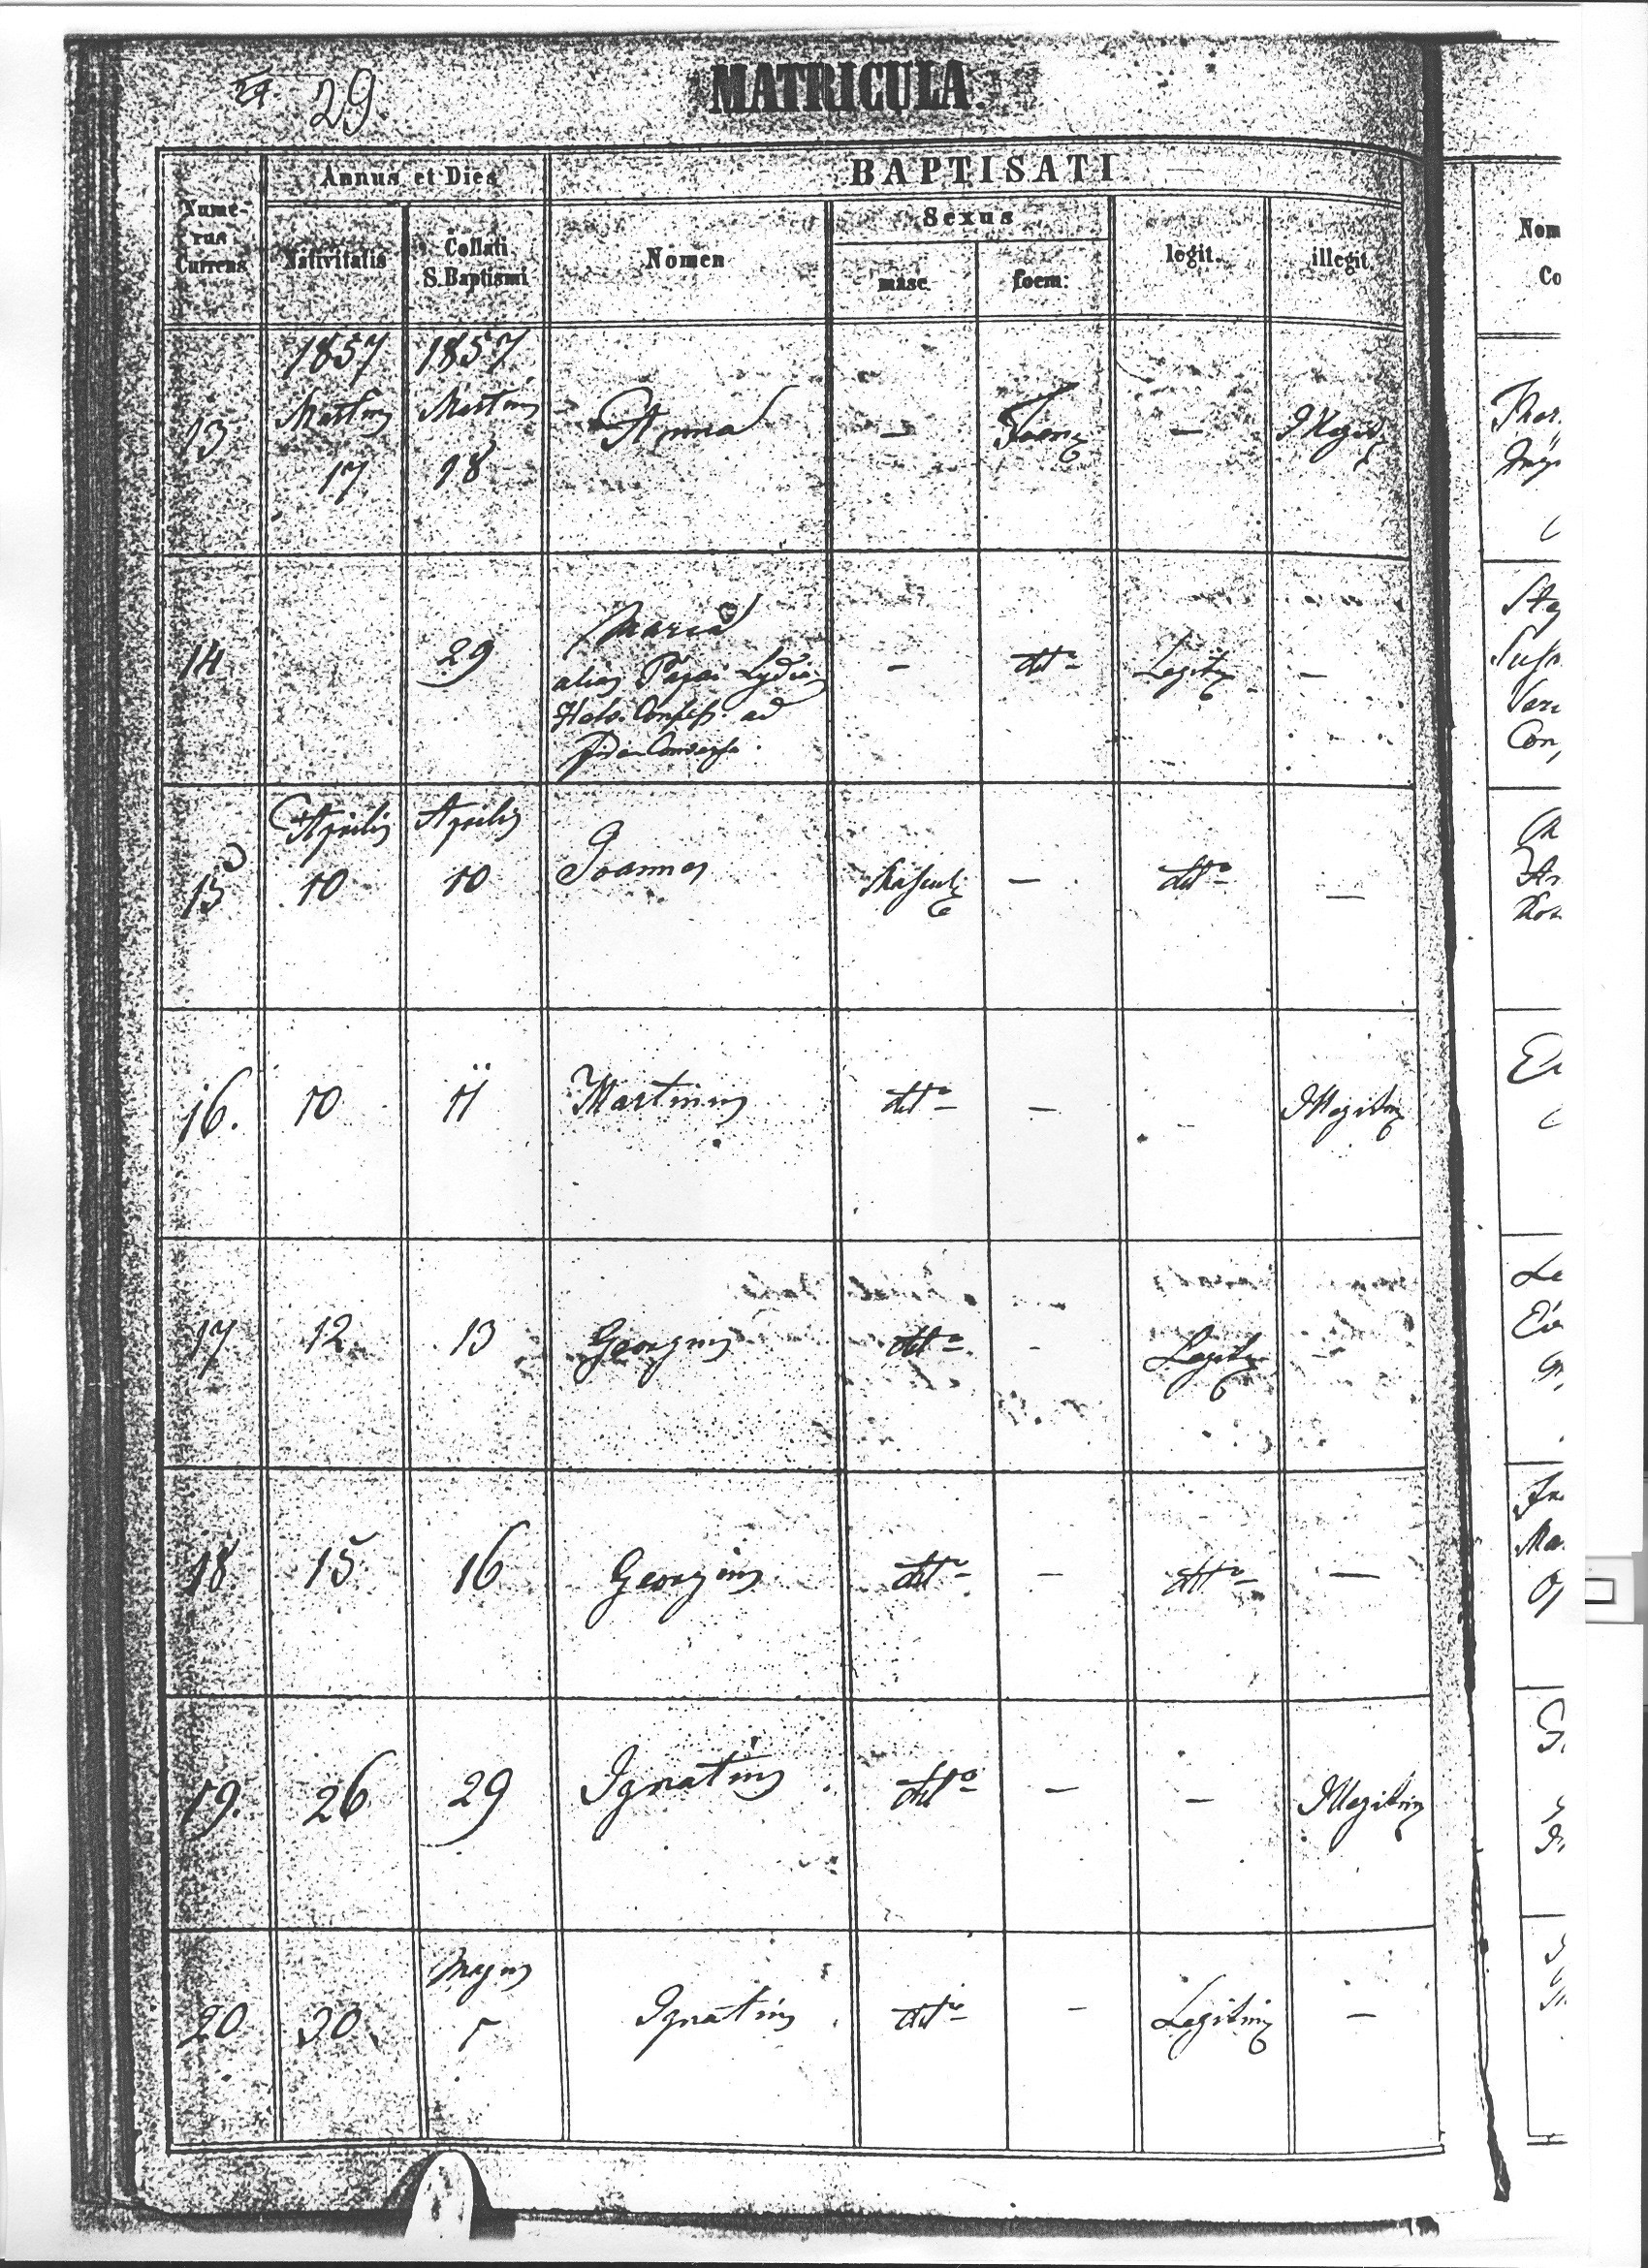 29.
MATRICULA.
Nume-
rus
Currens
Annus et Dies
BAPTISATI
Nativitatis
Collati
S. Baptismi
Nomen
Sexus
masc.
foem:
legit.
illegit.
Nom
Co
1857 1857
13 Martius 17 Martius 28 Anna — Foem — Illegit
14. 29 Maria — dtto Legit —
alias Pápai Lydia
Helv. Confess. ad
15 Aprilis 10 Aprilis 10 Joannes Mascul — dtto —
16. 10 11 Martinus dtto — – Illegitim
17 12 13 Georgius dtto - Legit –
18 15 16 Georgius dtto — dtto —
19. 26 29 Ignatius dtto — – Illegitim
20 30 Majus Ignatius dtto - Legitim —